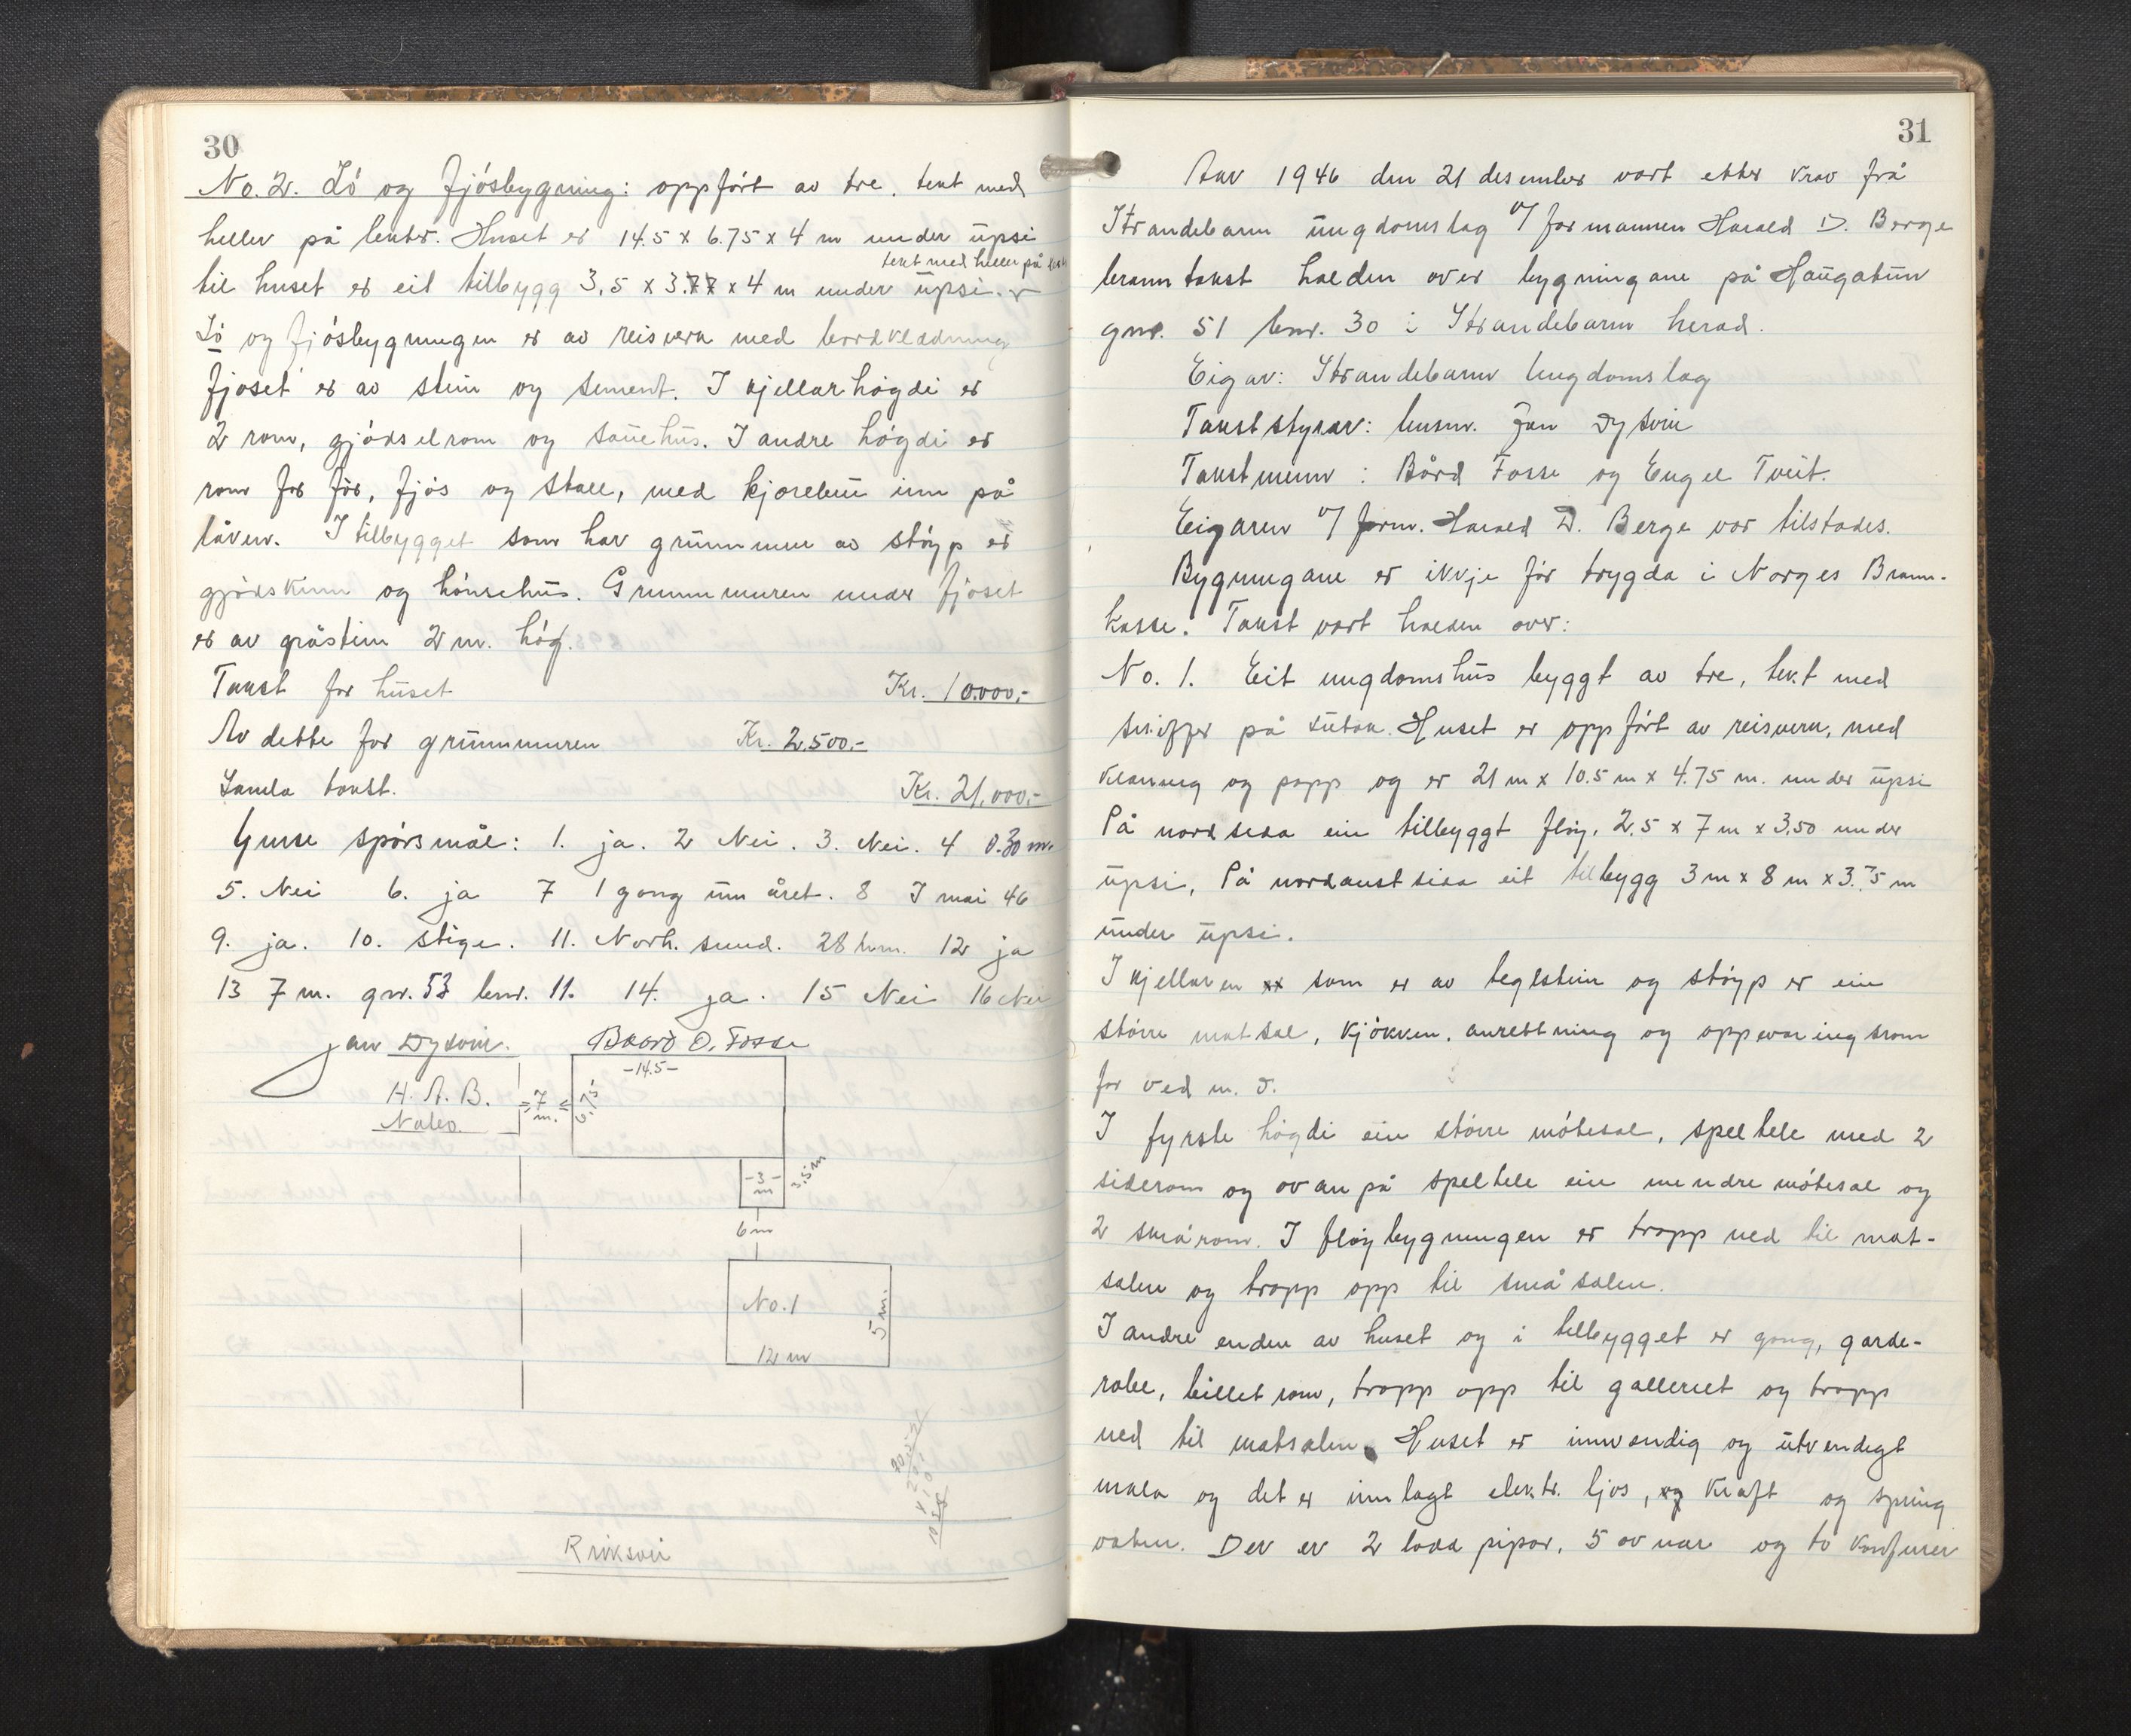 30
No. 2. Lö og fjósbygning: oppfört av tre, tekt med
heller på lekter. Huset er 14.5 x 6.75 x 4 m under upsi
tekt med heller på lekt
til huset er eit tilbygg 3,5 x 3.77 x 4 m under upsi.
Lö og fjósbygningen er av reisverk med bordklædning
fjoset er av stein og sement. I kjellarhögdi er
2 rom, gjödselrom og sauehus. I andre högdi er
rom for fôr, fjös og stall, med kjørebru inn på
låven. I tilbygget som har grunnmur av stöyp er
gjødskinn og hönsehus. Grunnmuren under fjöset
er av gråstein 2 m. höy.
Takst for huset Kr. 10.000,-
Av dette for grunnmuren Kr. 2.500.-
Samla takst. Kr. 21.000,-
Ymse spörsmål: 1. ja. 2 Nei. 3. Nei. 4 0.30 m.
5. Nei 6. ja 7 1 gong um året. 8 I mai 46
9. ja. 10. stige. 11. Norh. sund. 28 km. 12 ja
13 7 m. gnr. 53 bnr. 11. 14. ja. 15 Nei 16 Nei
Jan Dysvin. Baard O. Fosse
-14.5-
H. A. B.
Nabo
7 m.
6.75
-3- m
3.5 m
6 m
No. 1
5 m.
12 m
Riksvei
31
Aar 1946 den 21 desember vart etter krav frå
Strandebarm ungdomslag v/ formannen Harald D. Berge
branntakst halden over bygningane på Haugatun
gnr. 51 bnr. 30 i Strandebarm herad.
Eigar: Strandebarm Ungdomslag
Takststyrar: lensm. Jan Dysvin
Takstmenn: Bård Fosse og Engel Tveit.
Eigaren v/ form. Harald D. Berge var tilstades.
Bygningane er ikkje för trygda i Norges Brann-
kasse. Takst vart halden over:
No. 1. Eit ungdomshus byggt av tre, tekt med
skiffer på sutak. Huset er oppfört av reisverk, med
klæning og papp og er 21 m x 10.5 m x 4.75 m. under upsi
På nordsida ein tilbyggt flöy, 2.5 x 7 m x 3.50 under
upsi, På nordaustsida eit tilbygg 3 m x 8 m x 3.75 m
under upsi.
I kjellaren xx som er av teglstein og stöyp er ein
större matsal, kjökken, anrettning og oppvaringsrom
for ved m. v.
I fyrste högdi ein större mötesal, speltele med 2
siderom og ovanpå speltele ein mindre mötesal og
2 smårom. I flöybygningen er tropp ned til mat-
salen og tropp opp til småsalen.
I andre enden av huset og i tilbygget er gong, garde-
robe, billetrom, tropp opp til galleriet og tropp
ned til matsalen. Huset er innvendig og utvendigt
mala og det er innlagt elektr. ljos, og kraft og spring
vatn. Der er 2 lodd pipor, 5 ovnar og to komfurer